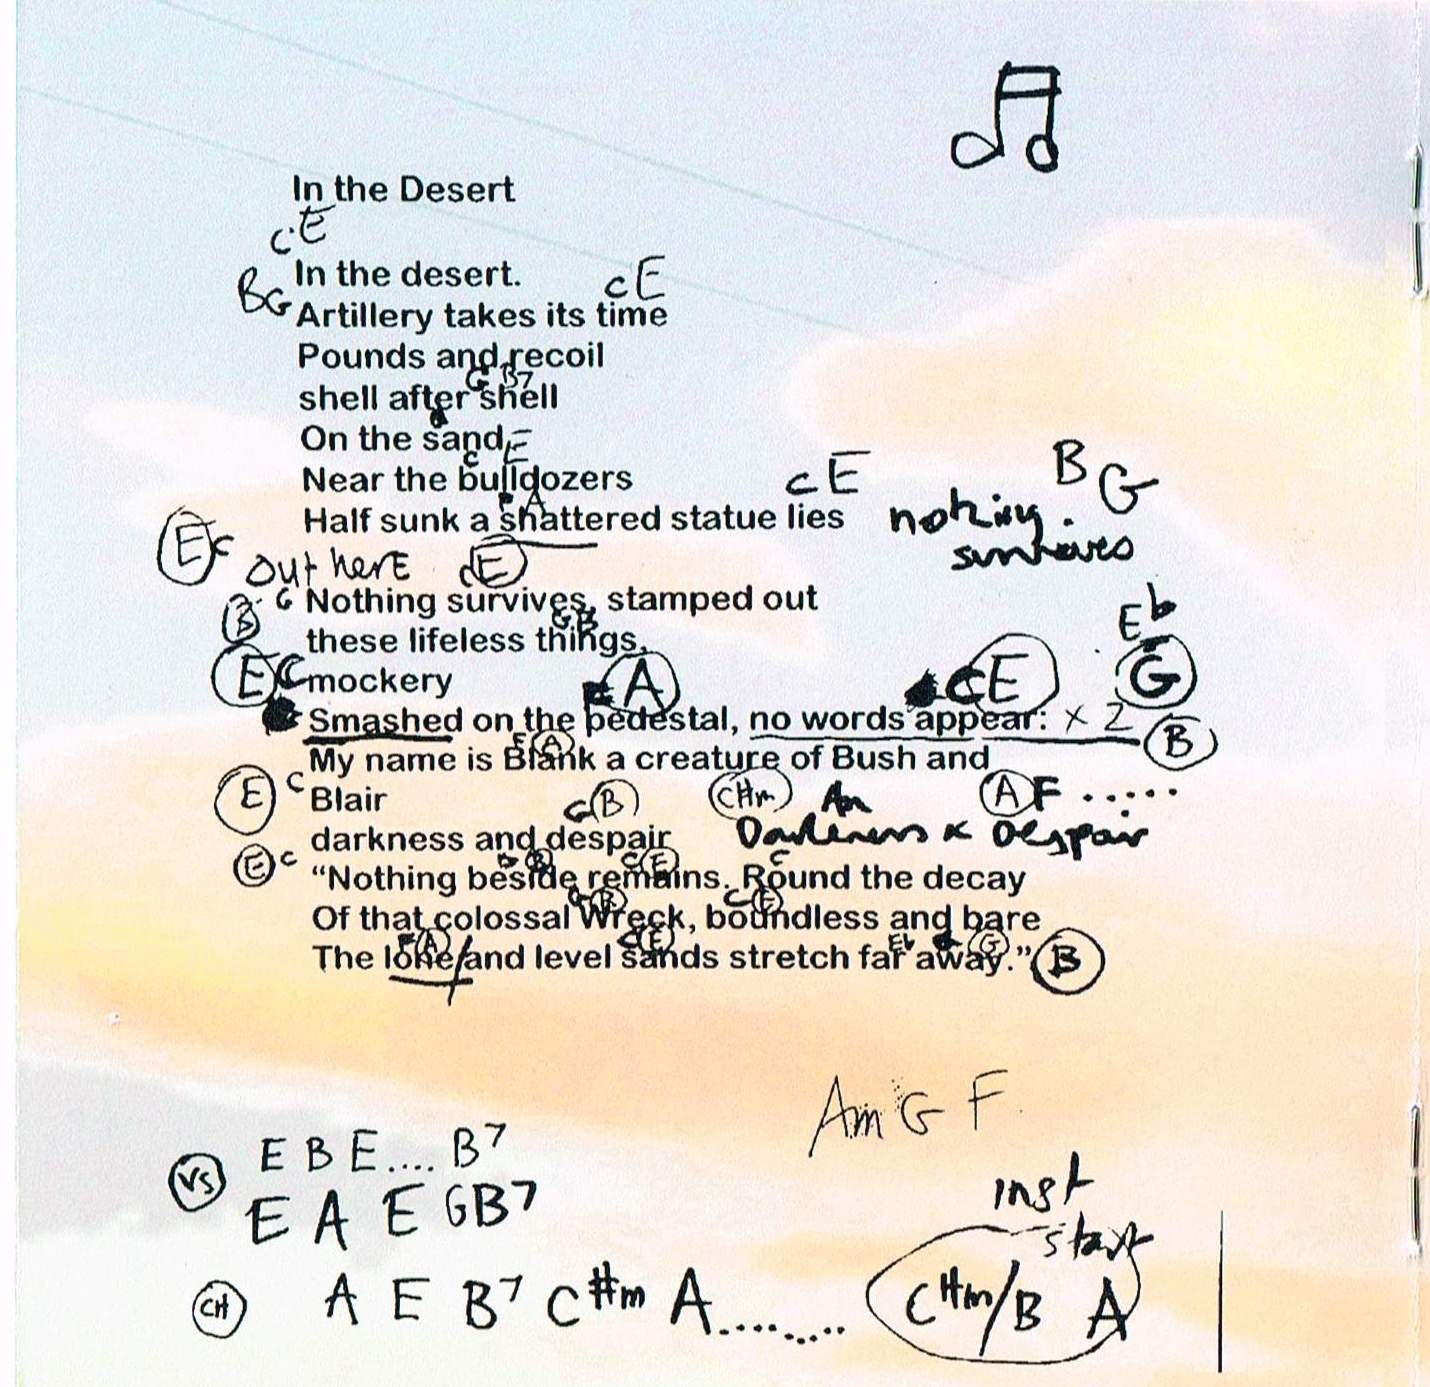 In the Desert
C E
In the desert.
B G C E
Artillery takes its time
Pounds and recoil
G B7
shell after shell
On the sand
C E
Near the bulldozers
F A C E B G
Half sunk a shattered statue lies nothing
survives
E C out here C E
B G Nothing survives, stamped out
G B
these lifeless things,
E C mockery
A C E Eb G
Smashed on the pedestal, no words appear: x 2 B
F A
My name is Blank a creature of Bush and
E C Blair
G B C#m Am A F ......
darkness and despair Darkness & Despair
E C
B C E C
“Nothing beside remains. Round the decay
G B C E
Of that colossal Wreck, boundless and bare
F A C E Eb G
The lone/and level sands stretch far away.” B
Am G F
VS E B E.... B7
E A E G B7
inst
start
CH A E B7 C#m A......... C#m/B A